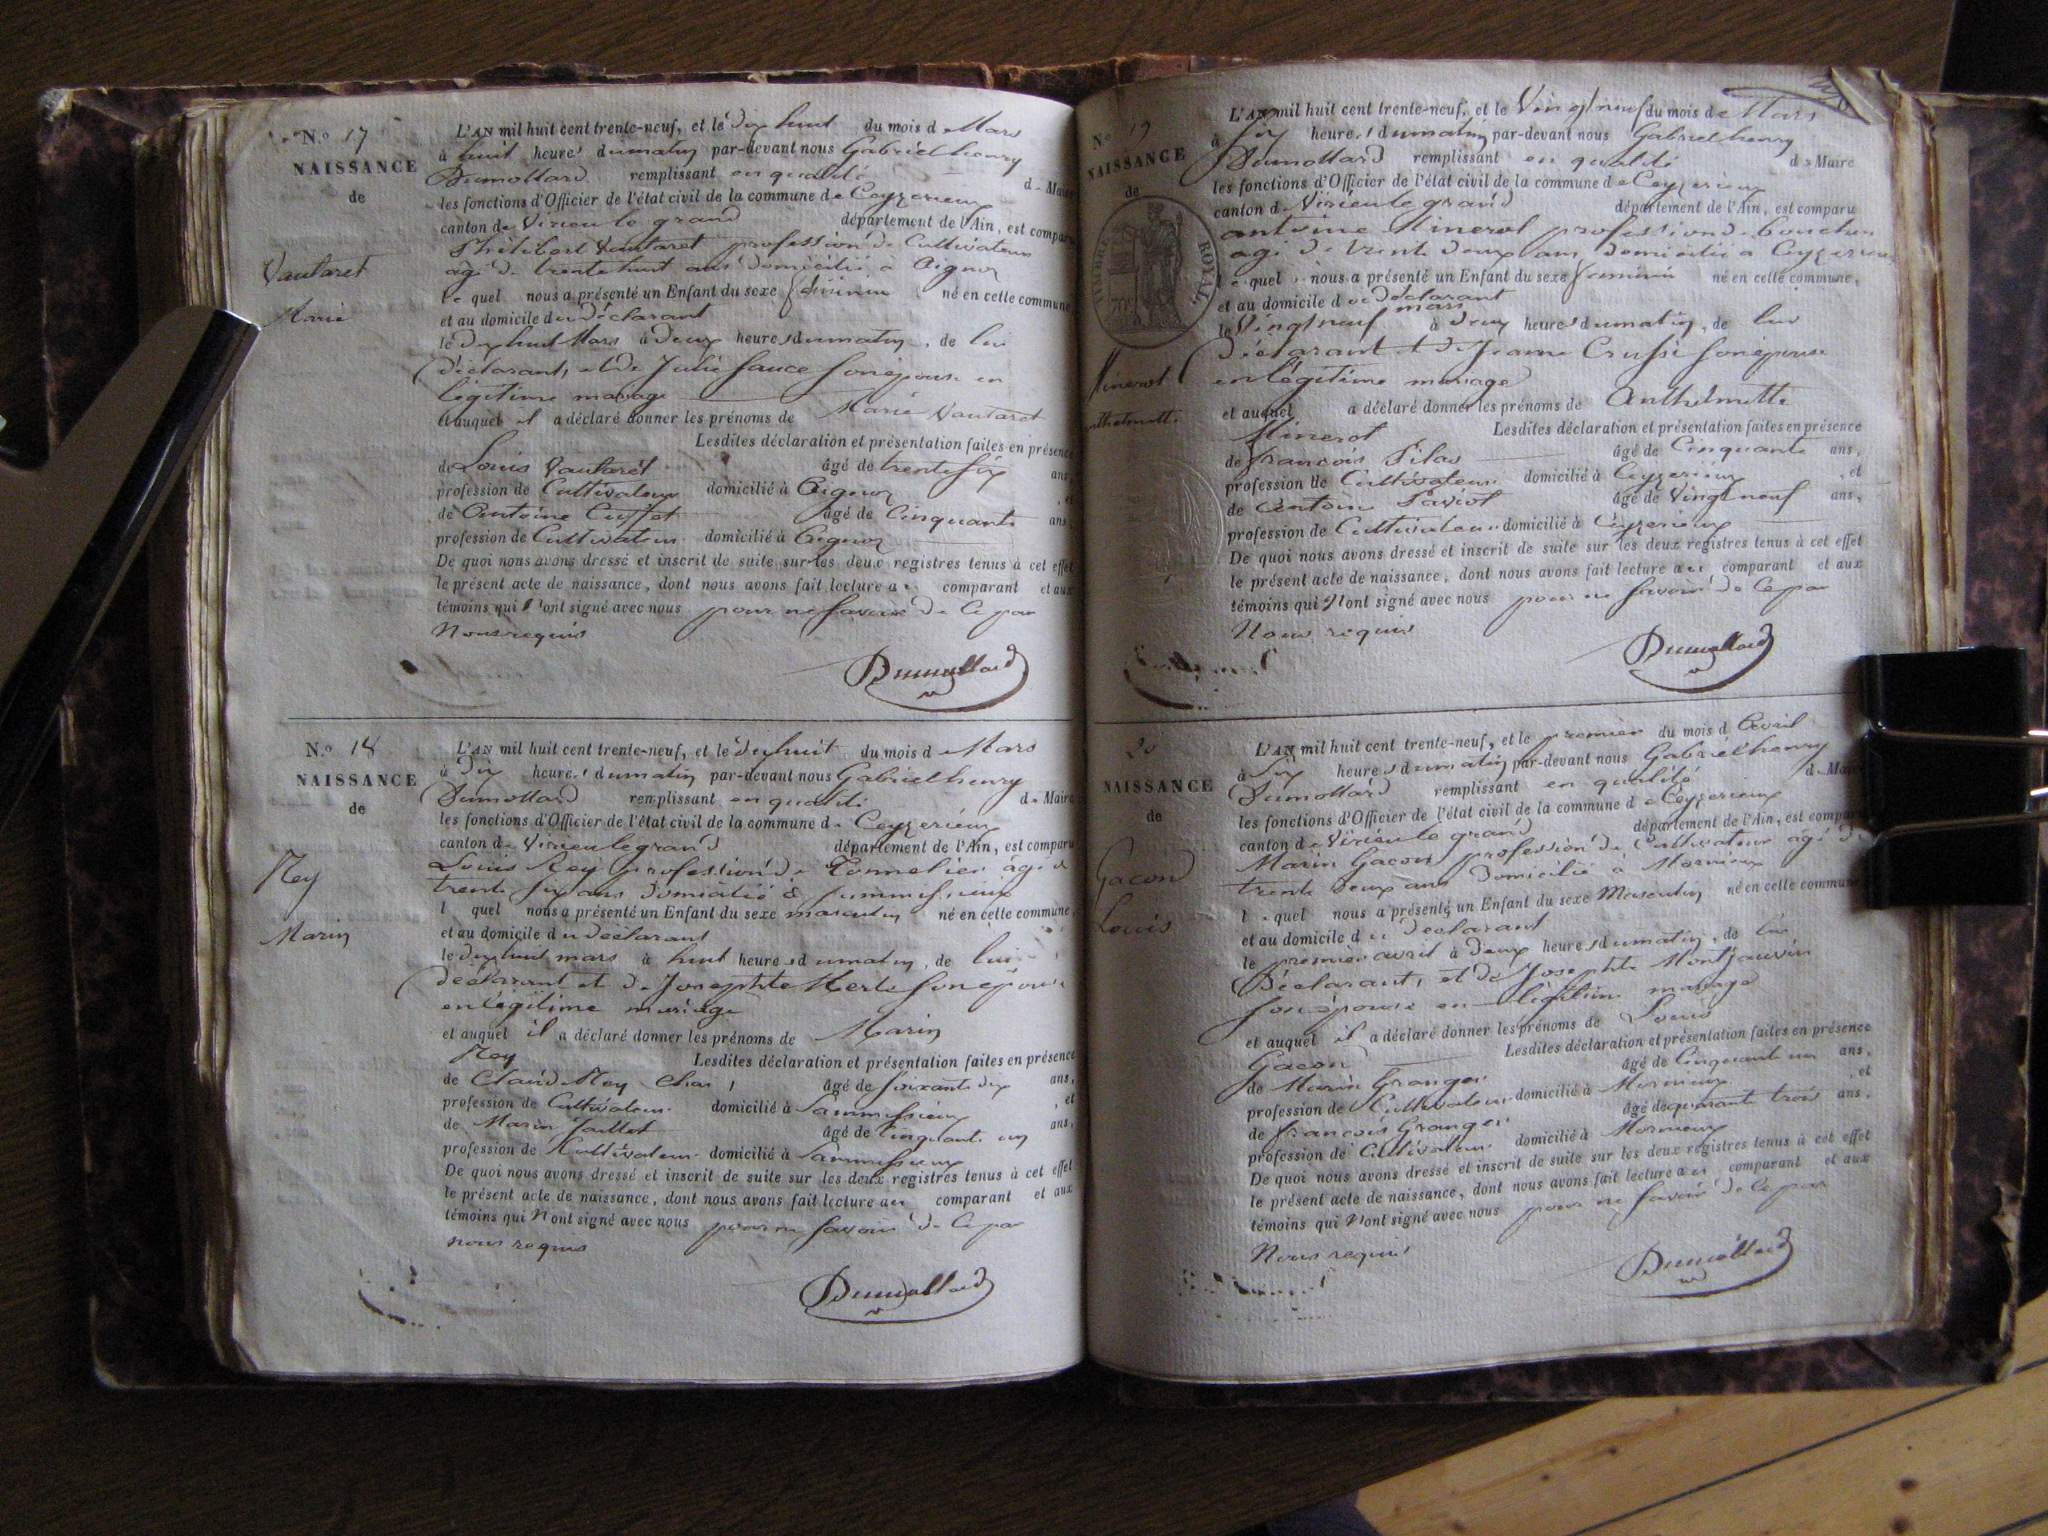 N.o 17
NAISSANCE
de
Vautaret
Marie
L'AN mil huit cent trente-neuf, et le dix huit du mois d Mars
à huit heures du matin par-devant nous Gabriel henry
Dumollard remplissant en qualité de Maire
les fonctions d'Officier de l'état civil de la commune de Ceyzerieux
canton de Virieu le grand département de l'Ain, est comparu
Philibert Vautaret profession de Cultivateur
âgé de trente huit ans domicilié à Aignoz
le quel nous a présenté un Enfant du sexe féminin né en cette commune,
et au domicile du déclarant
le dix huit Mars à deux heures du matin, de lui
déclarant, et de Julie fauce son épouse en
légitime mariage
et auquel il a déclaré donner les prénoms de Marie Vautaret
Lesdites déclaration et présentation faites en présence
de Louis Vautaret âgé de trente six ans,
profession de Cultivateur domicilié à Aignoz, et
de Antoine Cuffet âgé de Cinquante ans,
profession de Cultivateur domicilié à Aignoz
De quoi nous avons dressé et inscrit de suite sur les deux registres tenus à cet effet
le présent acte de naissance, dont nous avons fait lecture au comparant et aux
témoins qui n'ont signé avec nous pour ne savoir de ce par
Nous requis
Dumollard
N.o 18
NAISSANCE
de
Rey
Marin
L'AN mil huit cent trente-neuf, et le dix huit du mois d Mars
à dix heures du matin par-devant nous Gabriel henry
Dumollard remplissant en qualité de Maire
les fonctions d'Officier de l'état civil de la commune de Ceyzerieux
canton de Virieu le grand département de l'Ain, est comparu
Louis Rey profession de Tonnelier âgé de
trente six ans domicilié à
l quel nous a présenté un Enfant du sexe masculin né en cette commune,
et au domicile du déclarant
le dix huit mars à huit heures du matin, de lui
déclarant et de Josephte Merle son épouse
en légitime mariage
et auquel il a déclaré donner les prénoms de Marin
Rey Lesdites déclaration et présentation faites en présence
de Claude Rey âgé de soixante dix ans,
profession de Cultivateur domicilié à Sammissieux, et
de Marin Jaillet âgé de Cinquante un ans,
profession de Cultivateur domicilié à Sammissieux
De quoi nous avons dressé et inscrit de suite sur les deux registres tenus à cet effet
le présent acte de naissance, dont nous avons fait lecture au comparant et aux
témoins qui n'ont signé avec nous pour ne savoir de ce par
nous requis
Dumollard
No 19
NAISSANCE
de
TIMBRE ROYAL
Minerot
Anthelmette
L'AN mil huit cent trente-neuf, et le Vingt neuf du mois de Mars
à six heures du matin par-devant nous Gabriel henry
Dumollard remplissant en qualité de Maire
les fonctions d'Officier de l'état civil de la commune de Ceyzerieux
canton de Virieu le grand département de l'Ain, est comparu
antoine Minerot profession de boucher
agé de trente deux ans domicilié a Ceyzerieux
le quel nous a présenté un Enfant du sexe féminin né en cette commune,
et au domicile du déclarant
le Vingt neuf mars à deux heures du matin, de lui
déclarant et de Jeanne Crussi son épouse
en légitime mariage
et auquel a déclaré donner les prénoms de Anthelmette
Minerot Lesdites déclaration et présentation faites en présence
de françois Pilas âgé de Cinquante ans,
profession de Cultivateur domicilié à Ceyzerieux, et
de antoine Paviot âgé de Vingt neuf ans,
profession de Cultivateur domicilié à Ceyzerieux
De quoi nous avons dressé et inscrit de suite sur les deux registres tenus à cet effet
le présent acte de naissance, dont nous avons fait lecture au comparant et aux
témoins qui n'ont signé avec nous pour ne savoir de ce par
Nous requis
Dumollard
20
NAISSANCE
de
Gacon
Louis
L'AN mil huit cent trente-neuf, et le premier du mois d Avril
à six heures du matin par-devant nous Gabriel henry
Dumollard remplissant en qualité de Maire
les fonctions d'Officier de l'état civil de la commune de Ceyzerieux
canton de Virieu le grand département de l'Ain, est comparu
Marin Gacon profession de Cultivateur âgé de
trente deux ans domicilié à Mornieux
l quel nous a présenté un Enfant du sexe Masculin né en cette commune
et au domicile du déclarant
le premier avril à deux heures du matin, de lui
Déclarant, et de Josephte Montjauvin
son épouse en légitime mariage
et auquel il a déclaré donner les prénoms de Louis
Gacon Lesdites déclaration et présentation faites en présence
de Marin Granger âgé de Cinquante un ans,
profession de Cultivateur domicilié à Mornieux, et
de françois Granger âgé de quarante trois ans,
profession de Cultivateur domicilié à Mornieux
De quoi nous avons dressé et inscrit de suite sur les deux registres tenus à cet effet
le présent acte de naissance, dont nous avons fait lecture au comparant et aux
témoins qui n'ont signé avec nous pour ne savoir de ce par
Nous requis
Dumollard